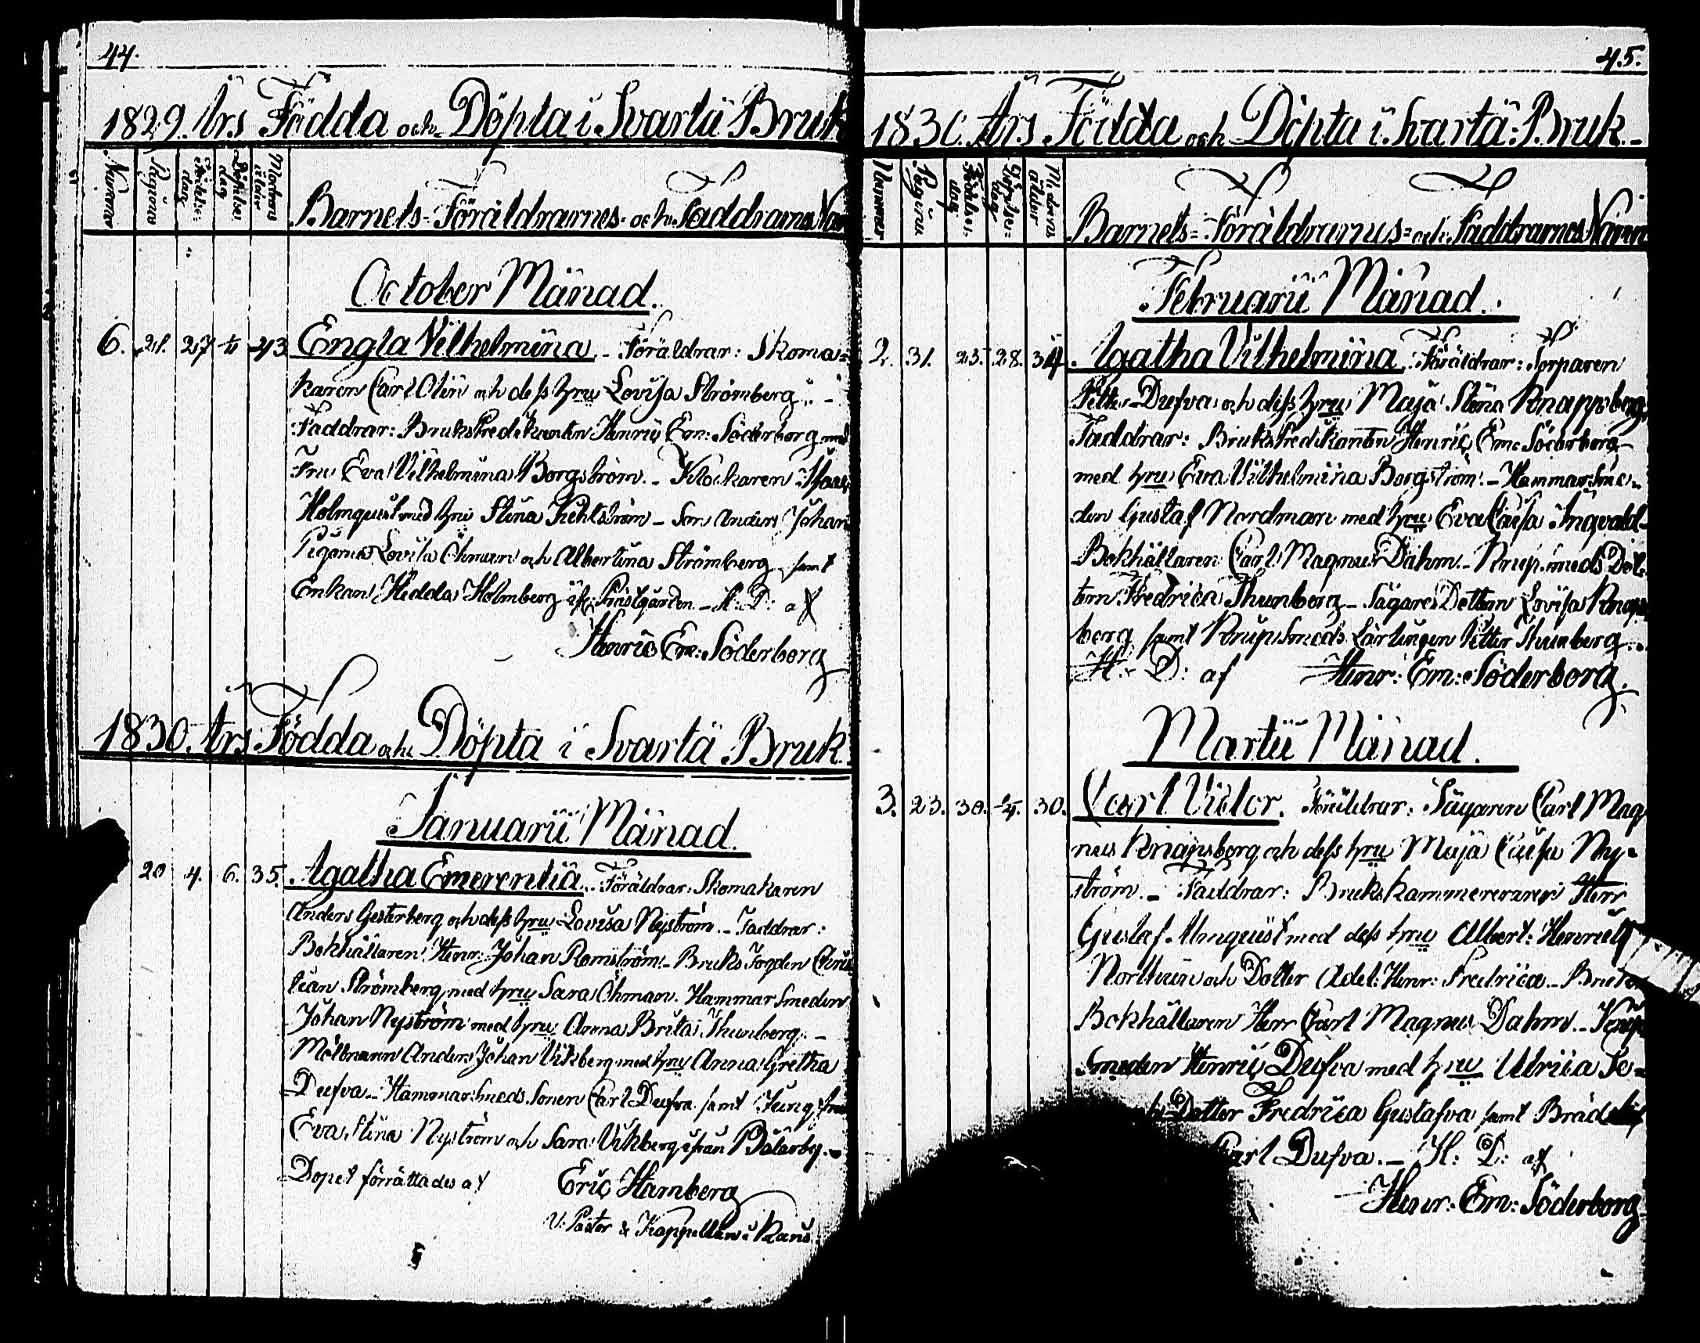 44.
1829. Års Födda och Döpta i Svartå Bruk
Nummer
Paginan
Födelse-dag
Döpelse dag
Modrens ålder
Barnets- Föräldrarnes- och Faddrarnes Namn
October Månad.
6. 21. 27 43 Engla Vilhelmina. Föräldrar: Skoma=
karen Carl Olin och dess hru Lovisa Strömberg
Faddrar: BruksPredikanten Henric Em: Söderborg med
Fru Eva Vilhelmina Borgström. - Klockaren
Holmquist med hru Stina - Son Anders Johan
Pigorna Lovisa Öhman och Albertina Strömberg samt
Enkan Hedda Holmberg ifr. Prästgården - H: D: af
Henric Em: Söderborg
1830. Års Födda och Döpta i Svartå Bruk
Januarii Månad.
20 4. 6. 35. Agatha Emerentia. Föräldrar: Skomakaren
Anders Gesterberg och dess hru Lovisa Nyström. - Faddrar:
Bokhållaren Henr: Johan Romström - Bruks Fogden Chris
tian Strömberg med hru Sara Öhman. Hammar Smeden
Johan Nyström med hru Anna Brita Thunberg. -
Mölnaren Anders Johan Vikberg med hru Anna Gretha
Dufva - Hammarsmeds Sonen Carl Dufva samt Jungfru
Eva Stina Nyström och Sara Vikberg ifrån Bålarby.
Dopet förrättades af Eric Hamberg
V: Pastor & Kappellan i
45.
1830. Års Födda och Döpta i Svartå Bruk.
Nummer
Pagina
Födelse-dag
Döpelse-dag
Modrens ålder
Barnets- Föräldrarnes- och Faddrarnes Namn
Februarii Månad.
2. 31. 25. 28. 34. Agatha Vilhelmina. Föräldrar: Torparen
Petter Dufva och dess hru Maja Stina Knapsberg
Faddrar: BruksPredikanten Henric Em: Söderborg
med hru Eva Vilhelmina Borgström. - Hammarsme-
den Gustaf Nordman med hru Eva Caisa Ingvald-
Bokhållaren Carl Magnus Dahm. - Knip.smeds Dot-
tern Fredrica Thunberg - Sågare Dottern Lovisa Knaps
berg samt Knipsmeds Lärlingen Petter Thunberg.
H: D: af Henr: Em: Söderborg.
Martii Månad.
3. 23. 30. 30. Carl Victor. Föräldrar: Sågaren Carl Mag
nus Knapsberg och dess hru Maja Caisa Ny-
ström. - Faddrar: Brukskammereraren Herr
Gustaf Almquist med dess hru Albert: Henriett
och Dotter Adel: Henr: Fredrica - Bruks
Bokhållaren Herr Carl Magnus Dahm - Knip
smeden Henric Dufva med hru Ulrica
Dotter Fredrica Gustafva samt
Carl Dufva. - H: D: af
Henr: Em: Söderborg